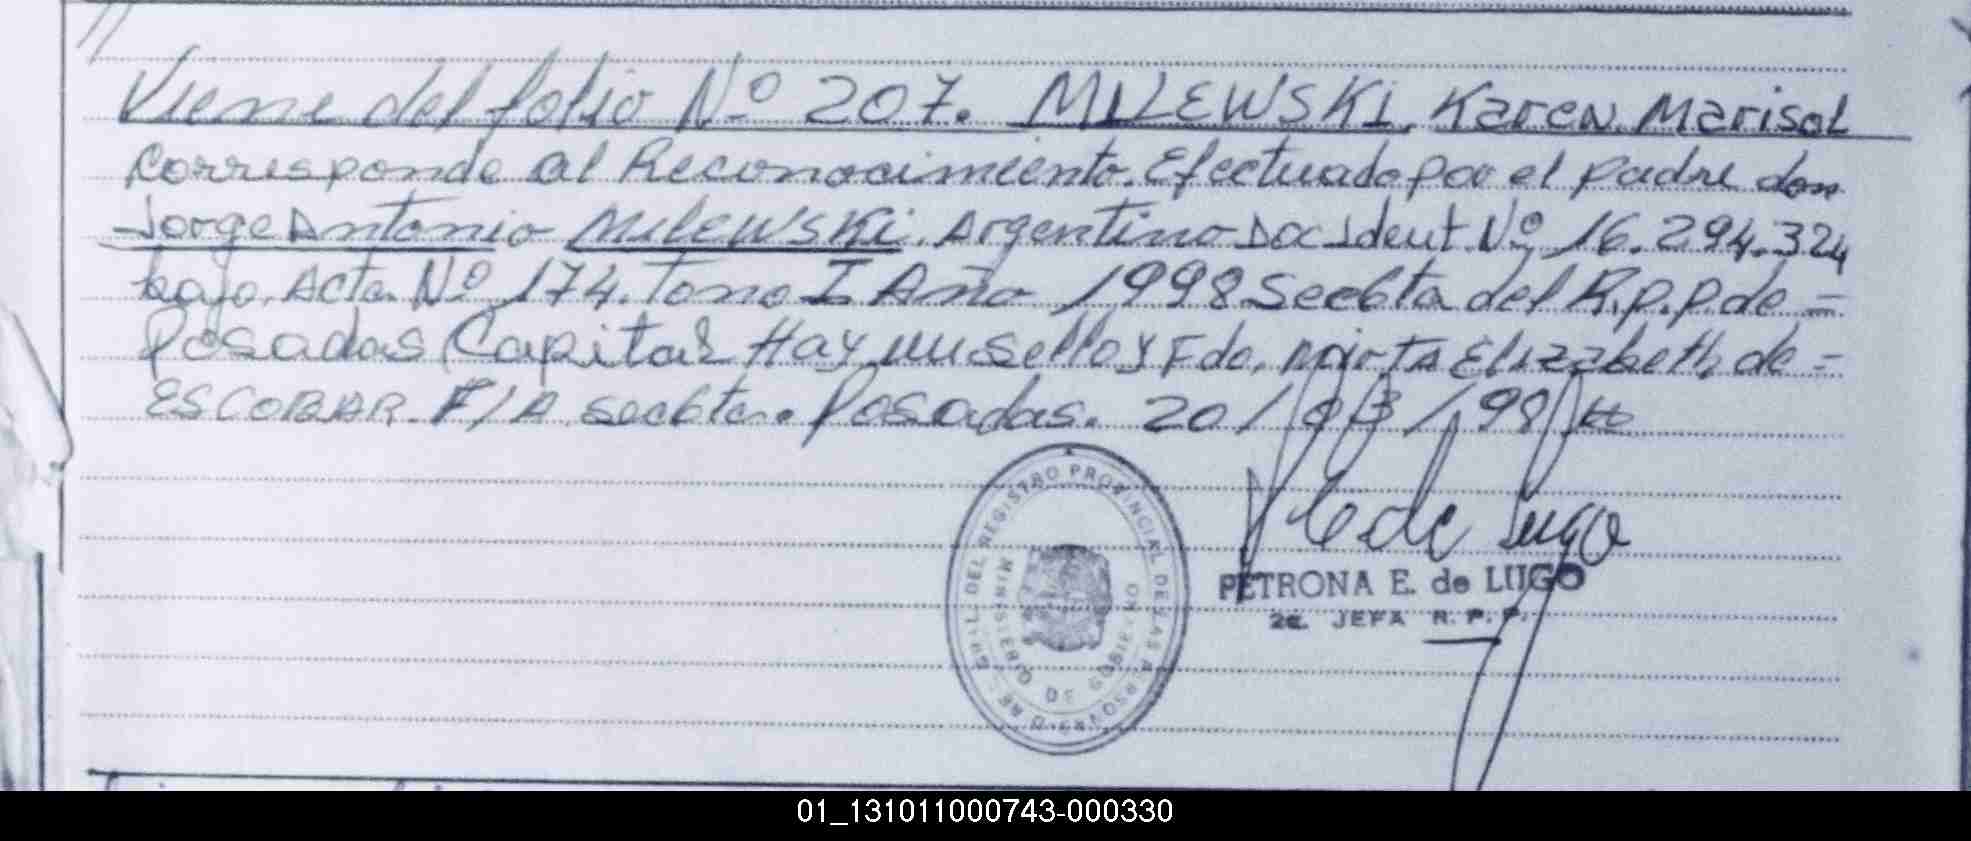 //
Viene del folio Nº 207. MILEWSKI, Karen Marisol
Corresponde al Reconocimiento. Efectuado por el padre don
Jorge Antonio MILEWSKI. Argentino Doc Ident Nº 16.294.324
bajo. Acta Nº 174. Tomo I Año 1998 Seccta del R.P.P. de =
Posadas Capital Hay un sello y Fdo. Mirta Elizabeth de =
ESCOBAR F/A seccta. Posadas. 20/03/98
DEL REGISTRO PROVINCIAL DE LAS PERSONAS
MINISTERIO DE GOBIERNO
de Lugo
PETRONA E. de LUGO
2a JEFA R. P. P.
01_131011000743-000330